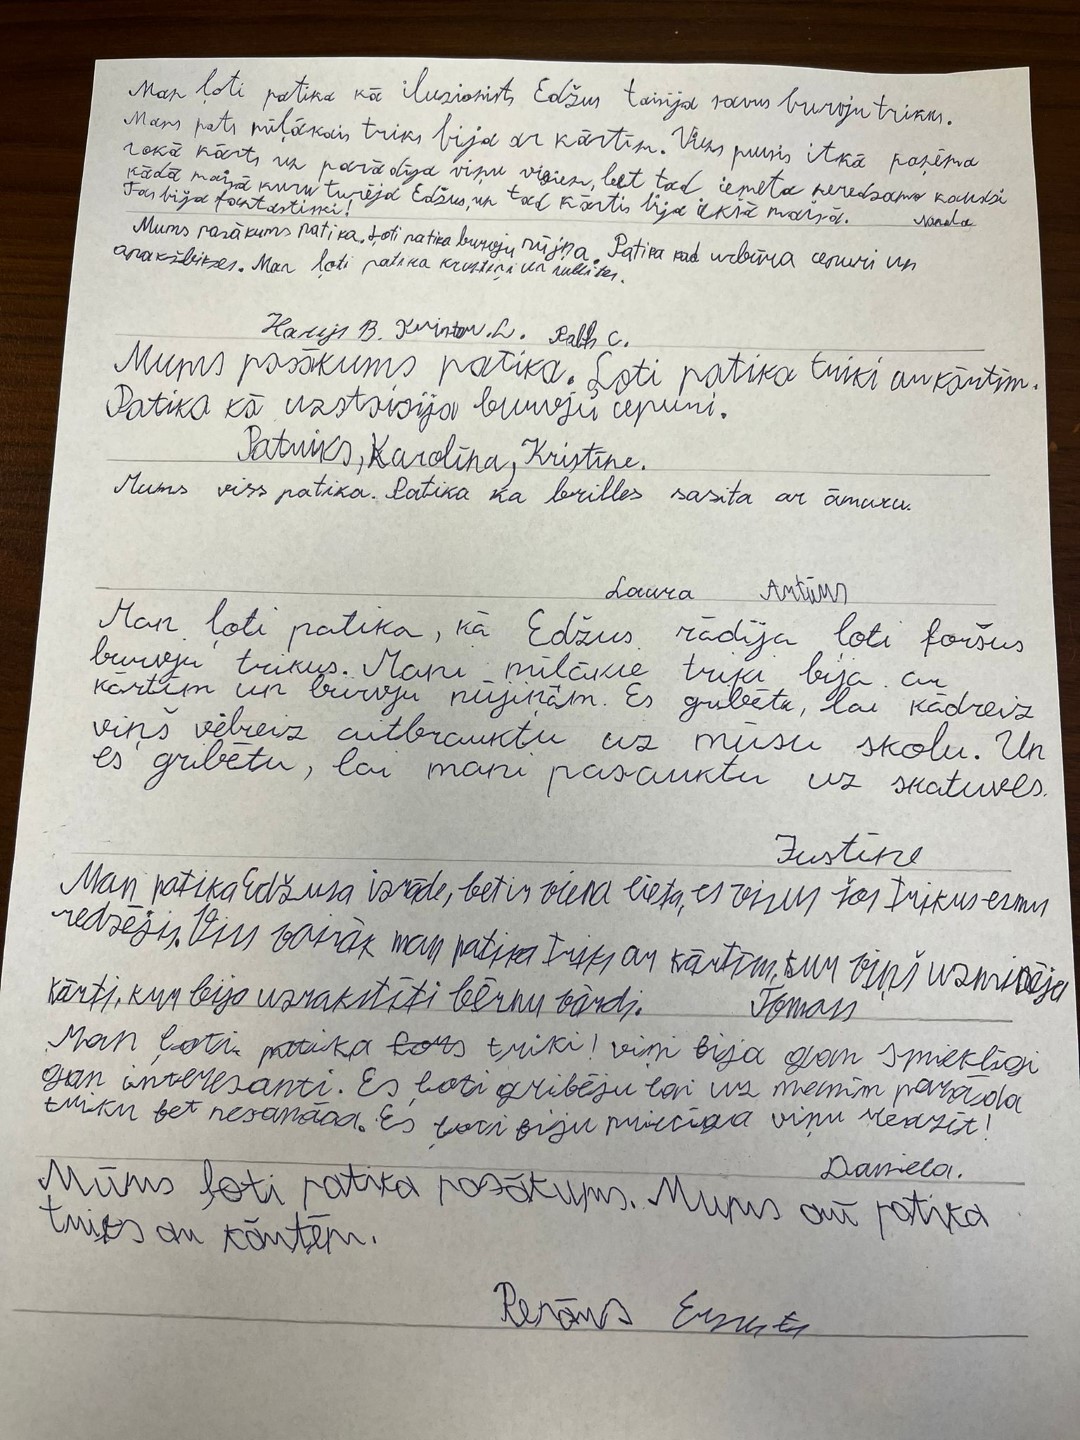 Man ļoti patika kā iluzionists Edžus taisīja savus burvju trikus.
Mans pats mīļākais triks bija ar kārtīm. Viens puisis itkā paņēma
rokā kārts un parādīja viņu visiem, bet tad iemeta neredzamo kaudzi
kādā maisā kuru turēja Edžus, un tad kārtis bija iekšā maisā.
Tas bija fantastiski! Nanda
Mums pasākums patika. Ļoti patika burvju nūjiņa. Patika kad urbina cepuri un
apakšbikses. Man ļoti patika krustiņi un nullītes.
Harijs B. Kristers L. C.
Mums pasākums patika. Ļoti patika triki ar kārtīm.
Patika kā uzstaisīja burvju cepuri.
Patriks, Karolīna, Kristīne.
Mums viss patika. Patika ka brilles sasita ar āmuru.
Laura Artūrs
Man ļoti patika, kā Edžus rādīja ļoti foršus
burvju trikus. Mani mīlākie triki bija ar
kārtīm un burvju nūjiņām. Es gribētu, lai kādreiz
viņš vēlreiz aitbrauktu uz mūsu skolu. Un
es gribētu, lai mani pasauktu uz skatuves.
Justīne
Man patika Edžusa izrāde, bet ir viena lieta, es visus šos trikus esmu
redzējis. Viss vairāk man patika triks ar kārtīm, kur viņš uzminēja
kārti, kur bija uzrakstīti bērnu vārdi. Tomass
Man ļoti patika triki! viņi bija gan smieklīgi
gan interesanti. Es ļoti gribēju lai uz manīm parāda
triku bet nesanāca. Es ļoti biju priecīga viņu redzēt!
Daniela.
Mūms ļoti patika pasākums. Mums arī patika
triks ar kārtēm.
Renārs Ernests